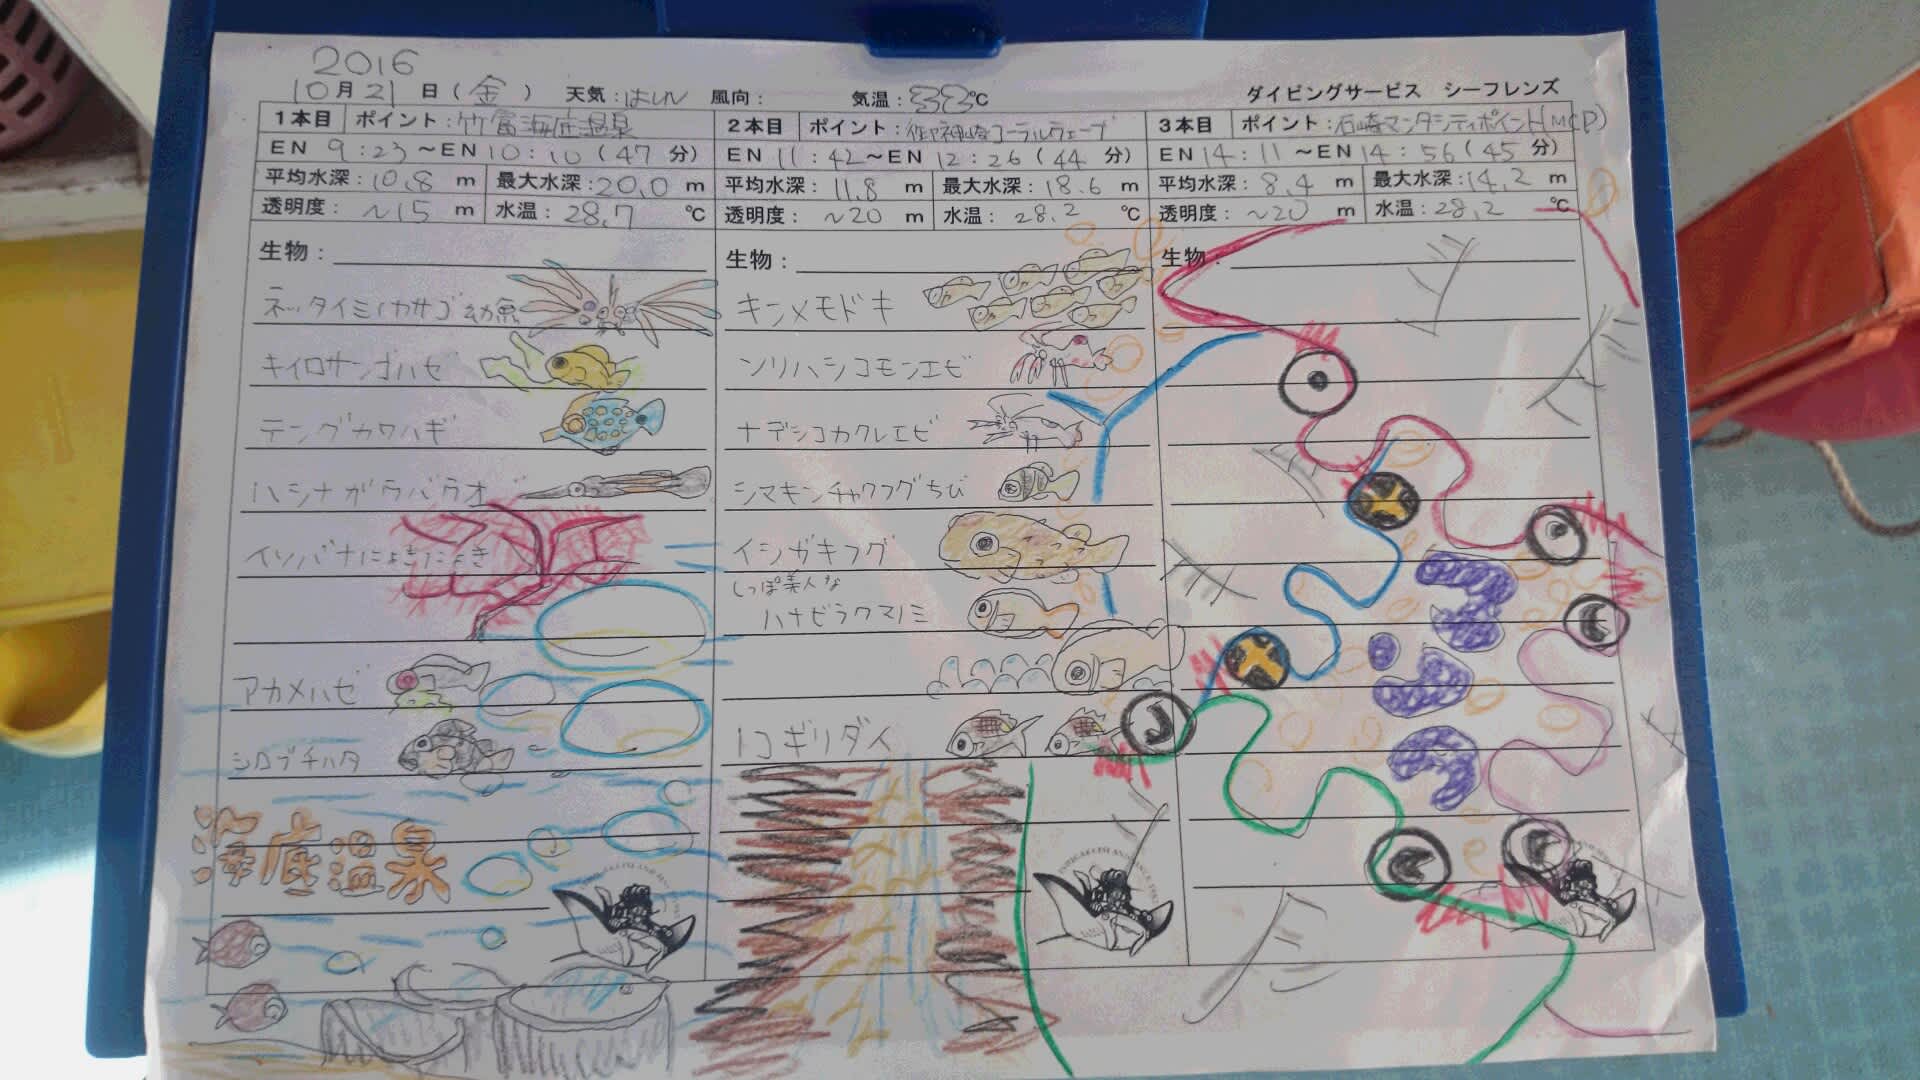 2016
10月21日(金) 天気:はれ 風向: 気温:33℃ ダイビングサービス シーフレンズ
1本目 ポイント:竹富海底温泉
EN 9:23~EN 10:10(47分)
平均水深:10.8 m 最大水深:20.0 m
透明度:~15 m 水温:28.7 ℃
生物:
ネッタイミノカサゴ幼魚
キイロサンゴハゼ
テングカワハギ
ハシナガウバウオ
イソバナにょきにょき
アカメハゼ
シロブチハタ
海底温泉
2本目 ポイント:御神崎コーラルウェーブ
EN 11:42~EN 12:26(44分)
平均水深:11.8 m 最大水深:18.6 m
透明度:~20 m 水温:28.2 ℃
生物:
キンメモドキ
ソリハシコモンエビ
ナデシコカクレエビ
シマキンチャクフグちび
イシガキフグ
しっぽ美人な
ハナビラクマノミ
ノコギリダイ
3本目 ポイント:石崎マンタシティポイント(MCP)
EN 14:11~EN 14:56(45分)
平均水深:8.4 m 最大水深:14.2 m
透明度:~20 m 水温:28.2 ℃
生物: